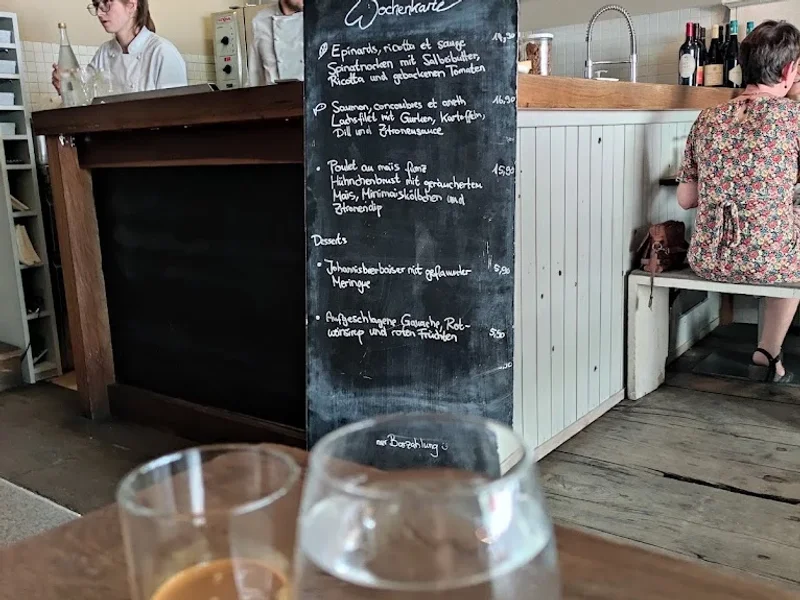 Wochenkarte
Epinards, ricotta et sauge 14,90
Spinatnocken mit Salbeibutter,
Ricotta und gebackenen Tomaten
Saumon, concombres et aneth 16,90
Lachsfilet mit Gurken, Kartoffeln,
Dill und Zitronensauce
• Poulet au maïs fumé 15,90
Hühnchenbrust mit geräuchertem
Mais, Minimaiskölbchen und
Zitronendip
Desserts
• Johannisbeerbaiser mit geflammter 5,90
Meringue
• Aufgeschlagene Ganache, Rot-
weinsirup und roten Früchten 5,50
nur Barzahlung